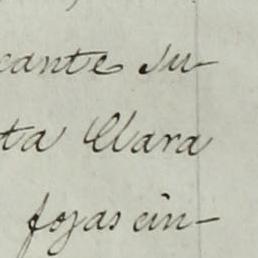 cante su-
ta Clara
fojas cin-